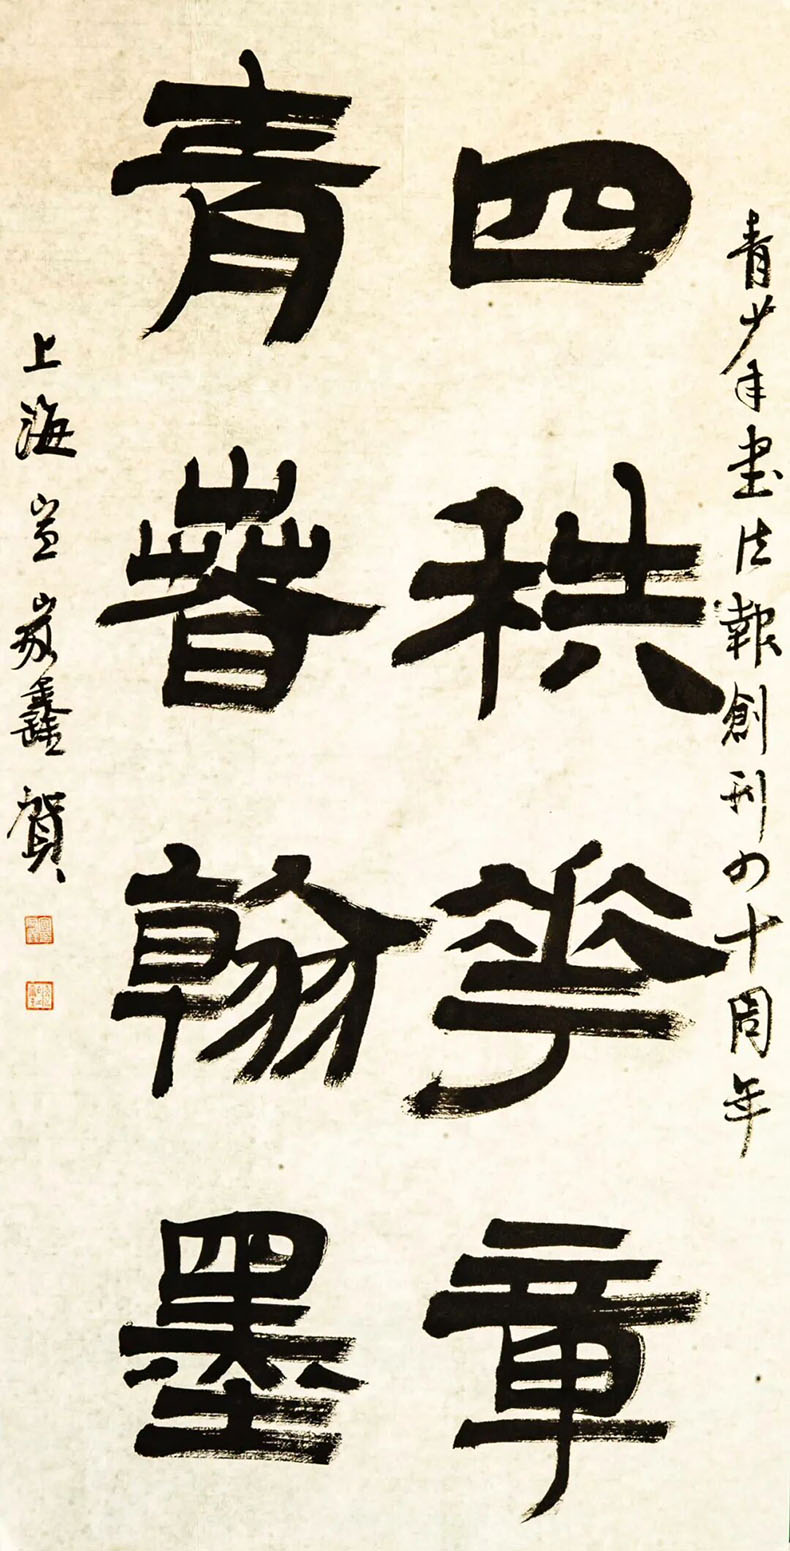 青少年書法報創刊四十周年
四秩華章
青春翰墨
上海宣家鑫賀